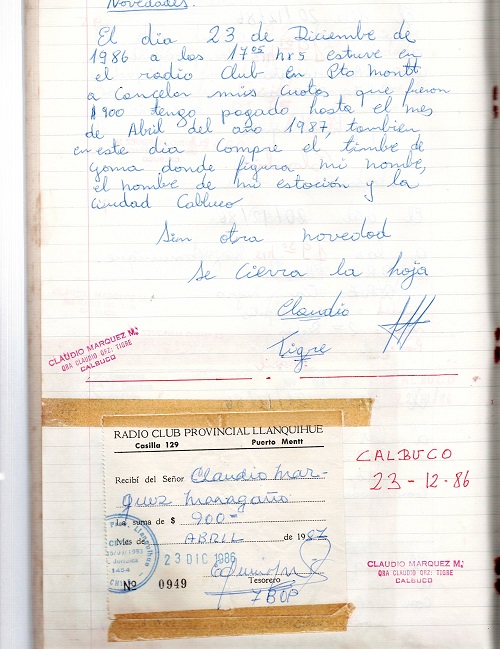 Novedades.
El día 23 de Diciembre de
1986 a las 17⁰⁵ hrs estuve en
el radio Club en Pto Montt
a Cancelar mis Cuotas que fueron
$900 tengo pagado hasta el mes
de Abril del año 1987, tambien
en este dia Compre el timbre de
goma donde figura mi nombre,
el nombre de mi estación y la
ciudad Calbuco
Sin otra novedad
Se Cierra la hoja
Claudio
Tigre
CLAUDIO MARQUEZ M.
QRA CLAUDIO QRZ: TIGRE
CALBUCO
RADIO CLUB PROVINCIAL LLANQUIHUE
Casilla 129 Puerto Montt
Recibí del Señor Claudio Mar-
quez Maragaño
La suma de $ 900-
Mes de ABRIL de 1987
23 DIC 1986
Tesorero
Nº 0949
CALBUCO
23-12-86
CLAUDIO MARQUEZ M.
QRA CLAUDIO QRZ: TIGRE
CALBUCO